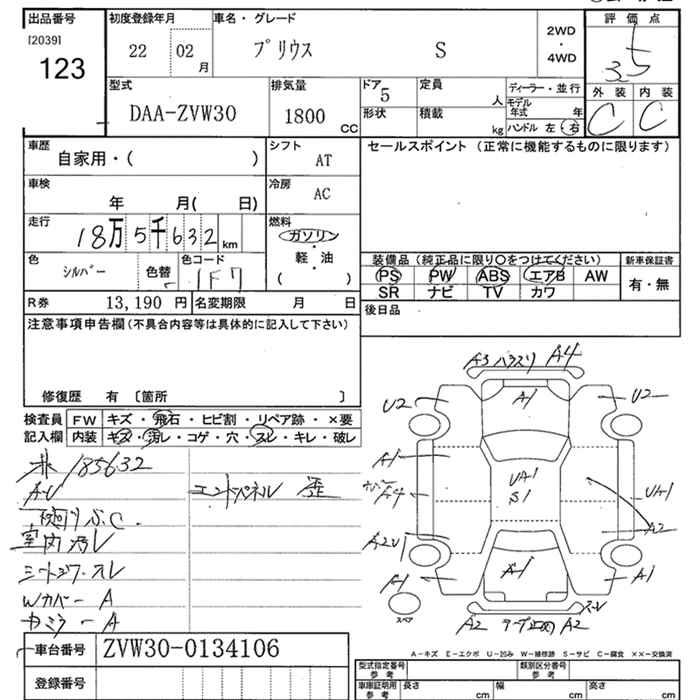 出品番号 初度登録年月 車名・グレード 評価点
[2039] 22 02 月 プリウス S 2WD・4WD 3.5
123
型式 排気量 ドア 5 定員 人 ディーラー・並行 外装 内装
DAA-ZVW30 1800 cc 形状 積載 kg モデル年式 年 C C
ハンドル 左・右
車歴 自家用・( ) シフト AT セールスポイント (正常に機能するものに限ります)
車検 年 月( 日) 冷房 AC
走行 18万5千632 km 燃料 ガソリン・軽・油 ( )
装備品 (純正品に限り○をつけてください) 新車保証書
色 シルバー 色替 色コード 1F7 PS PW ABS エアB AW 有・無
SR ナビ TV カワ
R券 13,190 円 名変期限 月 日 後日品
注意事項申告欄 (不具合内容等は具体的に記入して下さい)
修復歴 有 〔箇所 〕
検査員記入欄 FW キズ・飛石・ヒビ割・リペア跡・×要
内装 キズ・汚レ・コゲ・穴・スレ・キレ・破レ
185632
A・U エンドパネル 歪
室内汚レ
Wカバー A
カミラー A
A3 A4
A1
U2 U2
A1
A4 UA1 S1 UA1
A2
A2U1
A1 A1 A1
スペア
A2 A2
A-キズ E-エクボ U-凹み W-補修跡 S-サビ C-腐食 ××-交換済
車台番号 ZVW30-0134106
登録番号
型式指定番号 参考 類別区分番号 参考
車庫証明用 参考 長さ cm 幅 cm 高さ cm